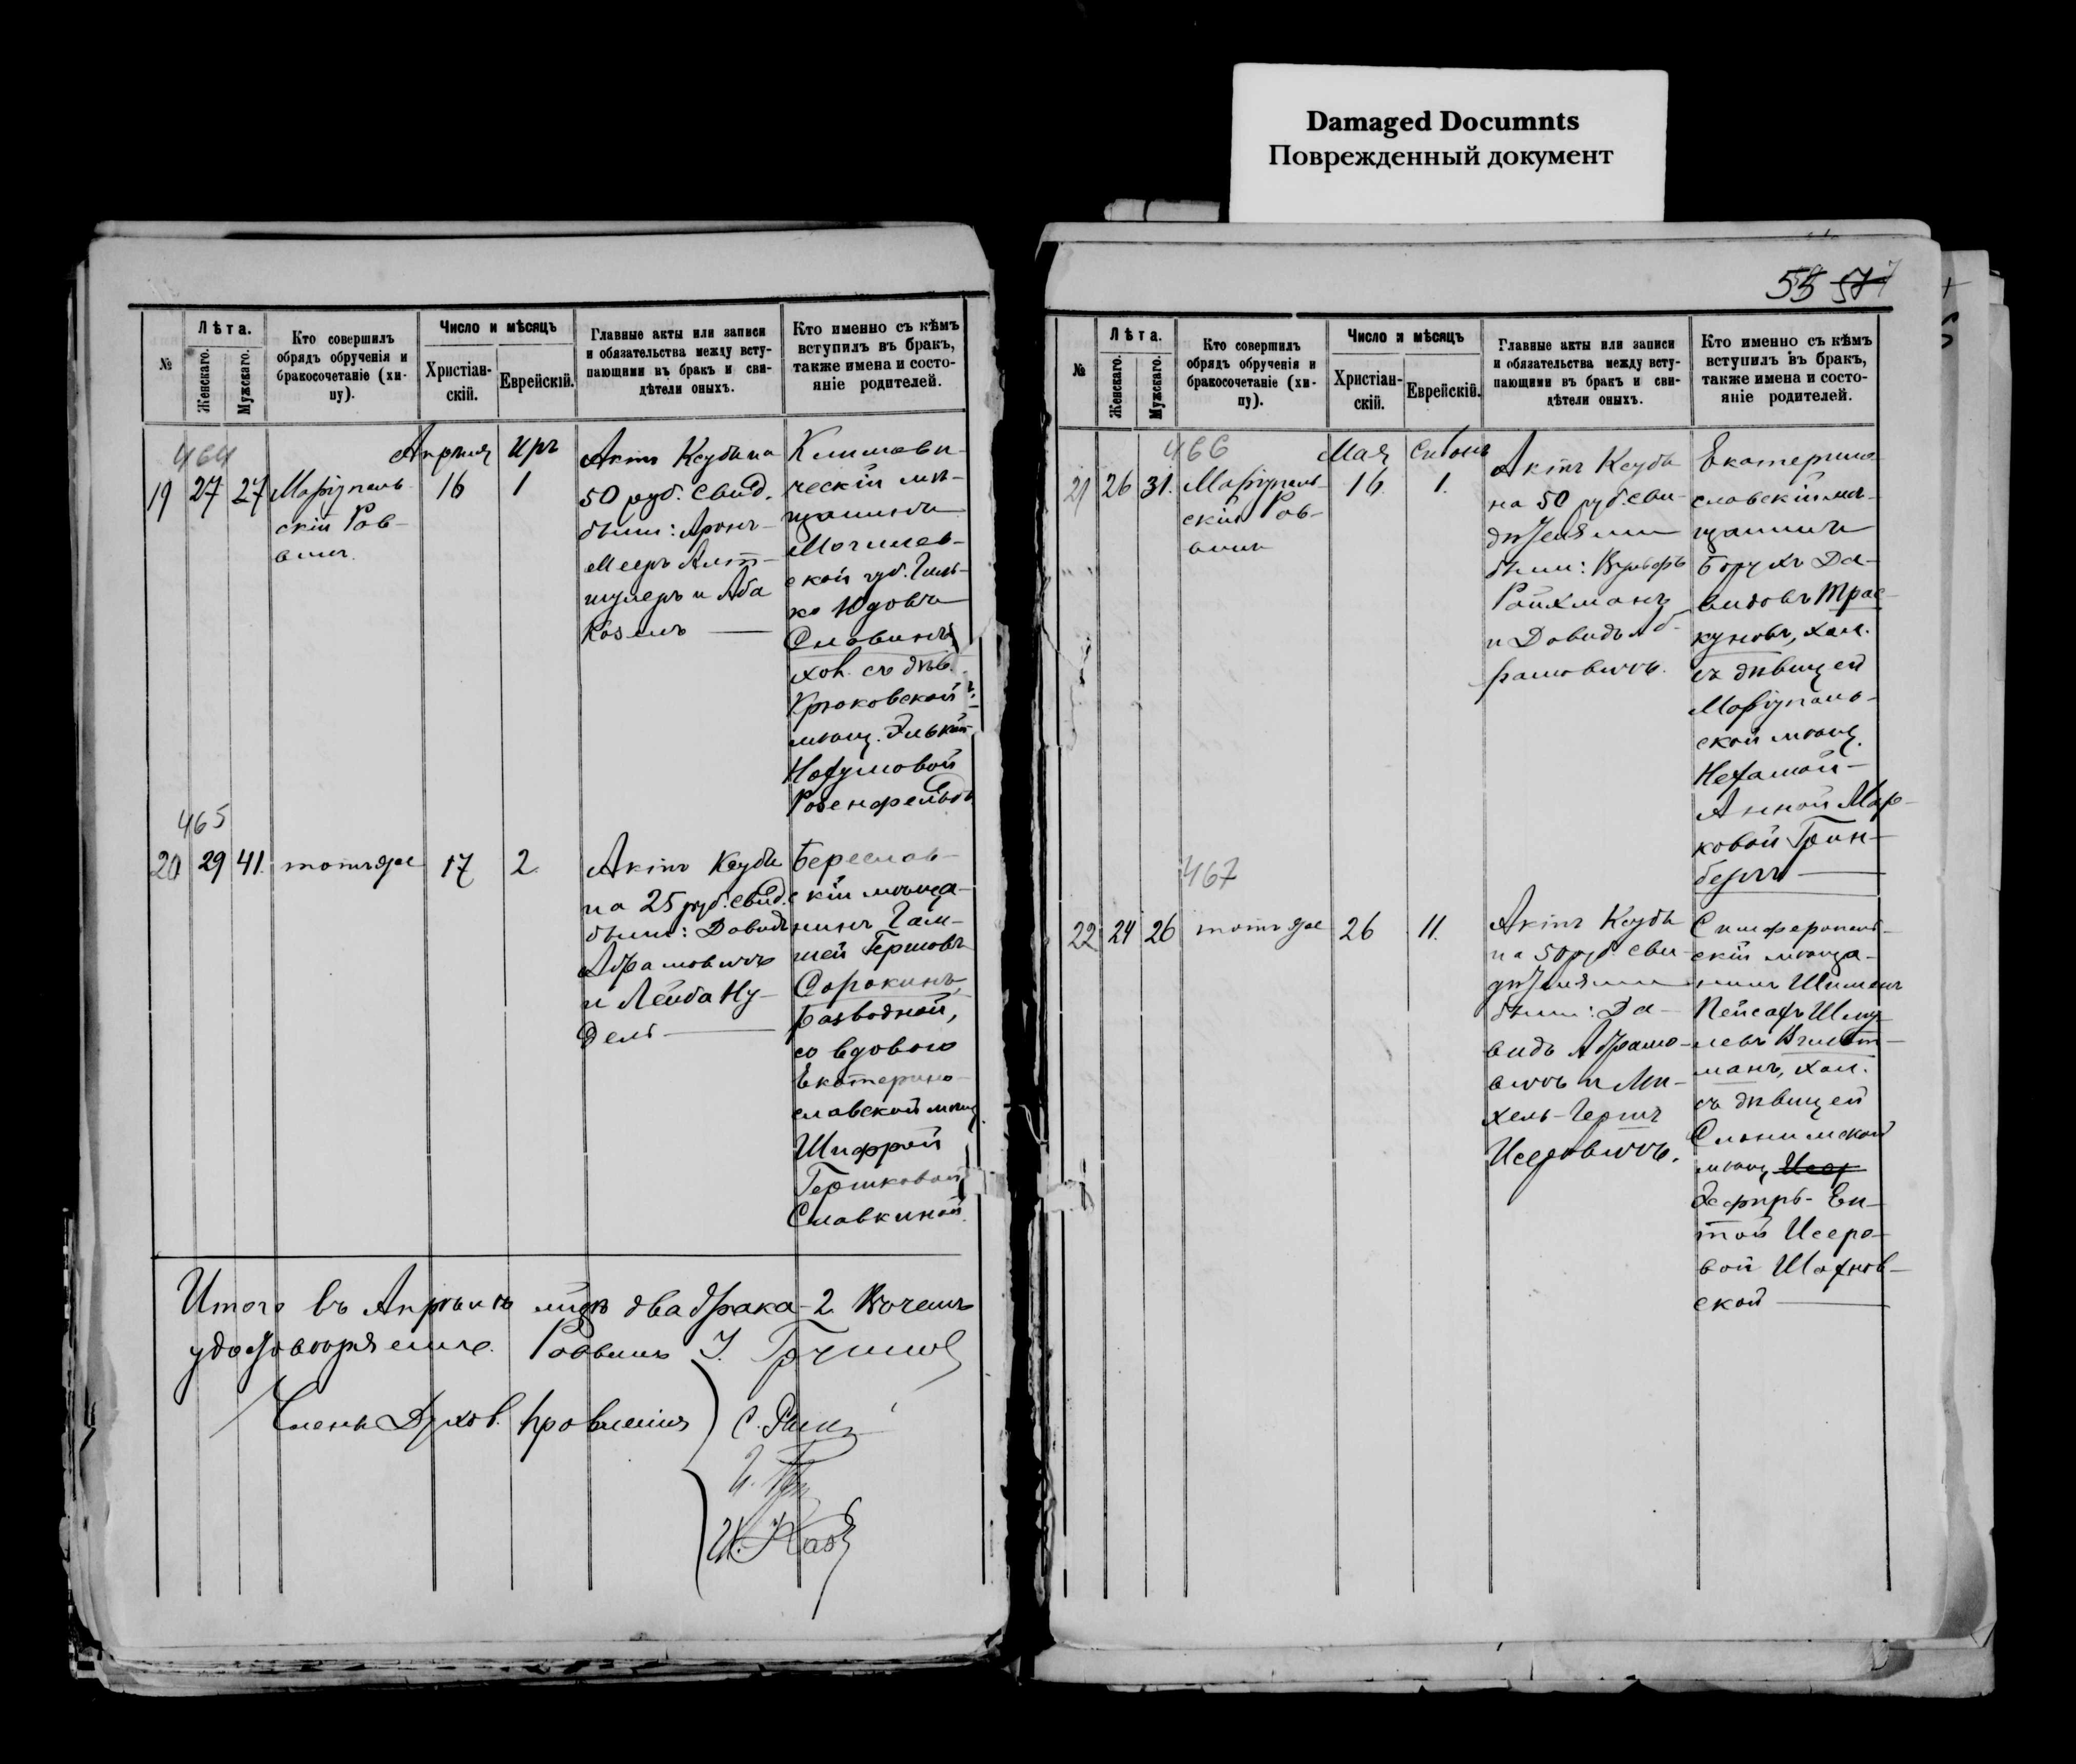 Damaged Documnts
Поврежденный документ
№
Лѣта.
Женскаго.
Мужскаго.
Кто совершилъ
обрядъ обрученія и
бракосочетаніе (хи-
пу).
Число и мѣсяцъ
Христіан-
скій.
Еврейскій.
Главные акты или записи
и обязательства между всту-
пающими въ бракъ и сви-
дѣтели оныхъ.
Кто именно съ кѣмъ
вступилъ въ бракъ,
также имена и состо-
яніе родителей.
464
Апрѣля
Иръ
19
27
27
Маріуполь-
скій Рав-
винъ.
16
1
Актъ Ксуба на
50 руб. Свид.
были: Аронъ-
Мееръ Альт-
шулеръ и Аба
Козелъ
Климови-
ческій мѣ-
щанинъ
Могилев-
ской губ. Гиль-
ко Юдовъ
Славинъ
хол. съ дѣв.
Крюковской
мѣщ. Элькой
Нахумовой
Розенфельдъ
465
20
29
41.
тотъ же
17
2.
Актъ Ксубы
на 25 руб. Свид.
были: Давидъ
Абрамовичъ
и Лейба Ну-
дель
Береслав-
скій мѣща-
нинъ Гам-
шей Гершовъ
Сорокинъ,
разводной,
со вдовою
Екатерино-
славской мѣщ.
Шифрой
Гершковой
Славкиной
Итого въ Апрѣлѣ м-цѣ два брака - 2. В чемъ
удостовѣряемъ. Раввинъ
Члены Духов. Правленія
55 57
№
Лѣта.
Женскаго.
Мужскаго.
Кто совершилъ
обрядъ обрученія и
бракосочетаніе (хи-
пу).
Число и мѣсяцъ
Христіан-
скій.
Еврейскій.
Главные акты или записи
и обязательства между всту-
пающими въ бракъ и сви-
дѣтели оныхъ.
Кто именно съ кѣмъ
вступилъ въ бракъ,
также имена и состо-
яніе родителей.
466
Мая
Сивонъ
21
26
31.
Маріуполь-
скій Рав-
винъ
16
1.
Актъ Ксубы
на 50 руб. Сви-
дѣтелями
были: Вульфъ
Райхманъ
и Давидъ Аб-
рамовичъ.
Екатерино-
славскій мѣ-
щанинъ
Борухъ Да-
видовъ Трас-
куновъ, хол.
съ дѣвицей
Маріуполь-
ской мѣщ.
Нехамой-
Анной Мар-
ковой Грин-
бергъ
467
22
24
26
тотъ же
26
11.
Актъ Ксубы
на 50 руб. Сви-
дѣтелями
были: Да-
видъ Абрамо-
вичъ и Ми-
хель-Гершъ
Исеровичъ.
Симферополь-
скій мѣща-
нинъ Шимонъ
Пейсахъ Шму-
левъ
манъ, хол.
съ дѣвицей
Слонимской
мѣщ.
Эсфирь-Ен-
той Исеро-
вой Шахнов-
ской